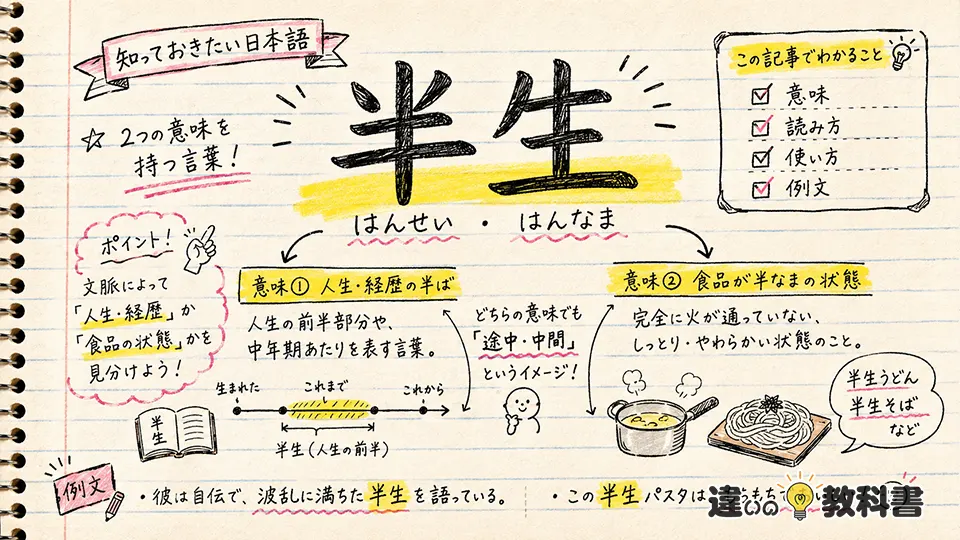 知っておきたい日本語
半生
はんせい・はんなま
☆ 2つの意味を
持つ言葉！
この記事でわかること
意味
読み方
使い方
例文
ポイント！
文脈によって
「人生・経歴」か
「食品の状態」かを
見分けよう！
意味① 人生・経歴の半ば
人生の前半部分や、
中年期あたりを表す言葉。
生まれた
これまで
これから
半生(人生の前半)
半生
どちらの意味でも
「途中・中間」
というイメージ！
意味② 食品が半なまの状態
完全に火が通っていない、
しっとり・やわらかい状態のこと。
半生うどん
半生そば
など
例文
・彼は自伝で、波乱に満ちた半生を語っている。
・この半生パスタは
違いの教科書